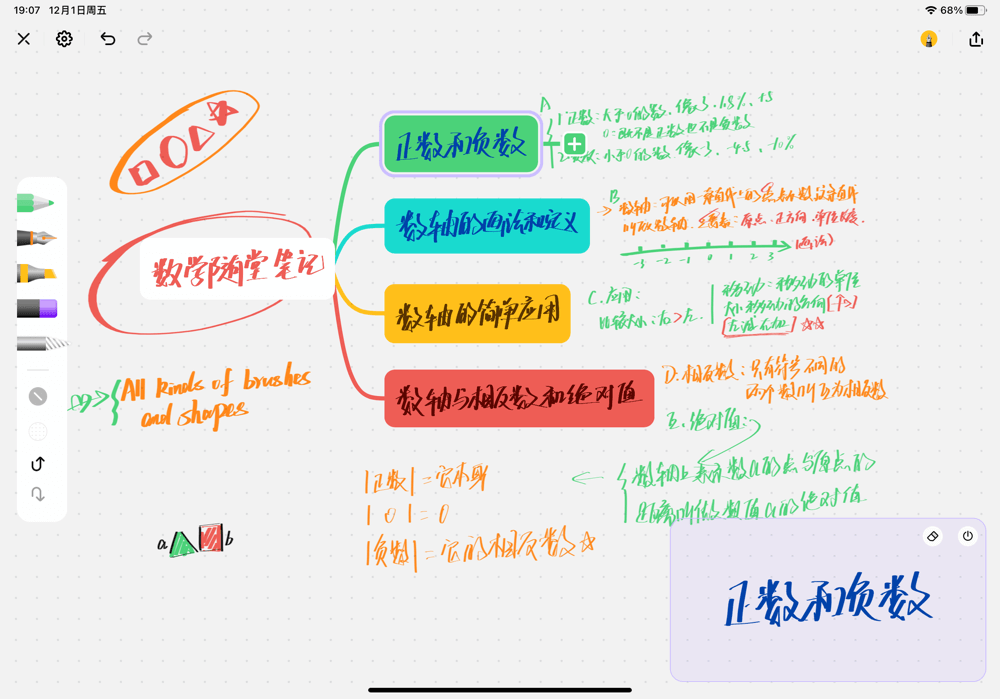 19:07 12月1日周五
68%
数学随堂笔记
正数和负数
A
1.正数:大于0的数,像3、1.5%、+5
0:既不是正数也不是负数
2.负数:小于0的数 像-3、-4.5、-10%
数轴的画法和定义
B
数轴:
叫做数轴.三要素:原点、正方向、单位长度
-3 -2 -1 0 1 2 3
(画法)
数轴的简单应用
C.应用:
比较大小:右>左.
移动:移动的单位
大小 移动的方向
[左减右加]☆☆
数轴与相反数和绝对值
D.相反数:只有符号不同的
两个数叫互为相反数
E.绝对值:
数轴上表示数a的点与原点的
距离叫做数值a的绝对值
|正数|=它本身
|0|=0
|负数|=它的相反数☆
All kinds of brushes
and shapes
a b
正数和负数